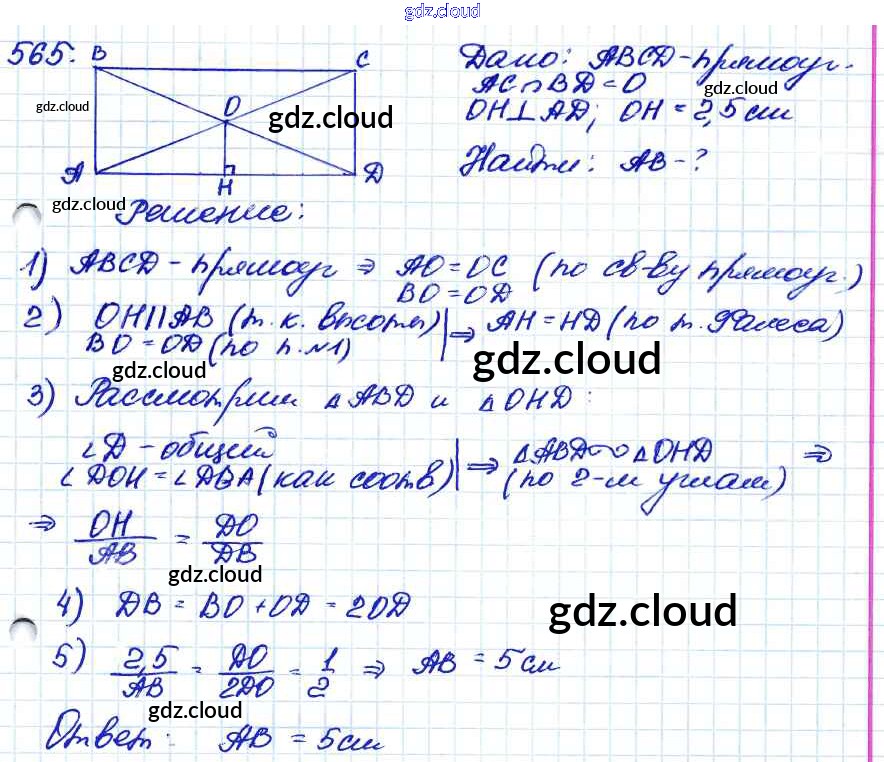 gdz.cloud
565. B C
Дано: ABCD - прямоуг.
AC ∩ BD = O
gdz.cloud
gdz.cloud
O
gdz.cloud
OH ⊥ AD; OH = 2,5 см
A H D
Найти: AB - ?
gdz.cloud
Решение:
1) ABCD - прямоуг ⇒ AO = OC (по св-ву прямоуг.)
BO = OD
2) OH || AB (т.к. высоты) ⇒ AH = HD (по т. Фалеса)
BO = OD (по п. №1)
gdz.cloud
gdz.cloud
3) Рассмотрим △ABD и △OHD:
∠D - общий
∠DOH = ∠DBA (как соотв) ⇒ △ABD ∾ △OHD ⇒
(по 2-м углам)
⇒ OH/AB = DO/DB
gdz.cloud
4) DB = BO + OD = 2OD
gdz.cloud
5) 2,5/AB = DO/2DO = 1/2 ⇒ AB = 5 см
gdz.cloud
Ответ: AB = 5 см